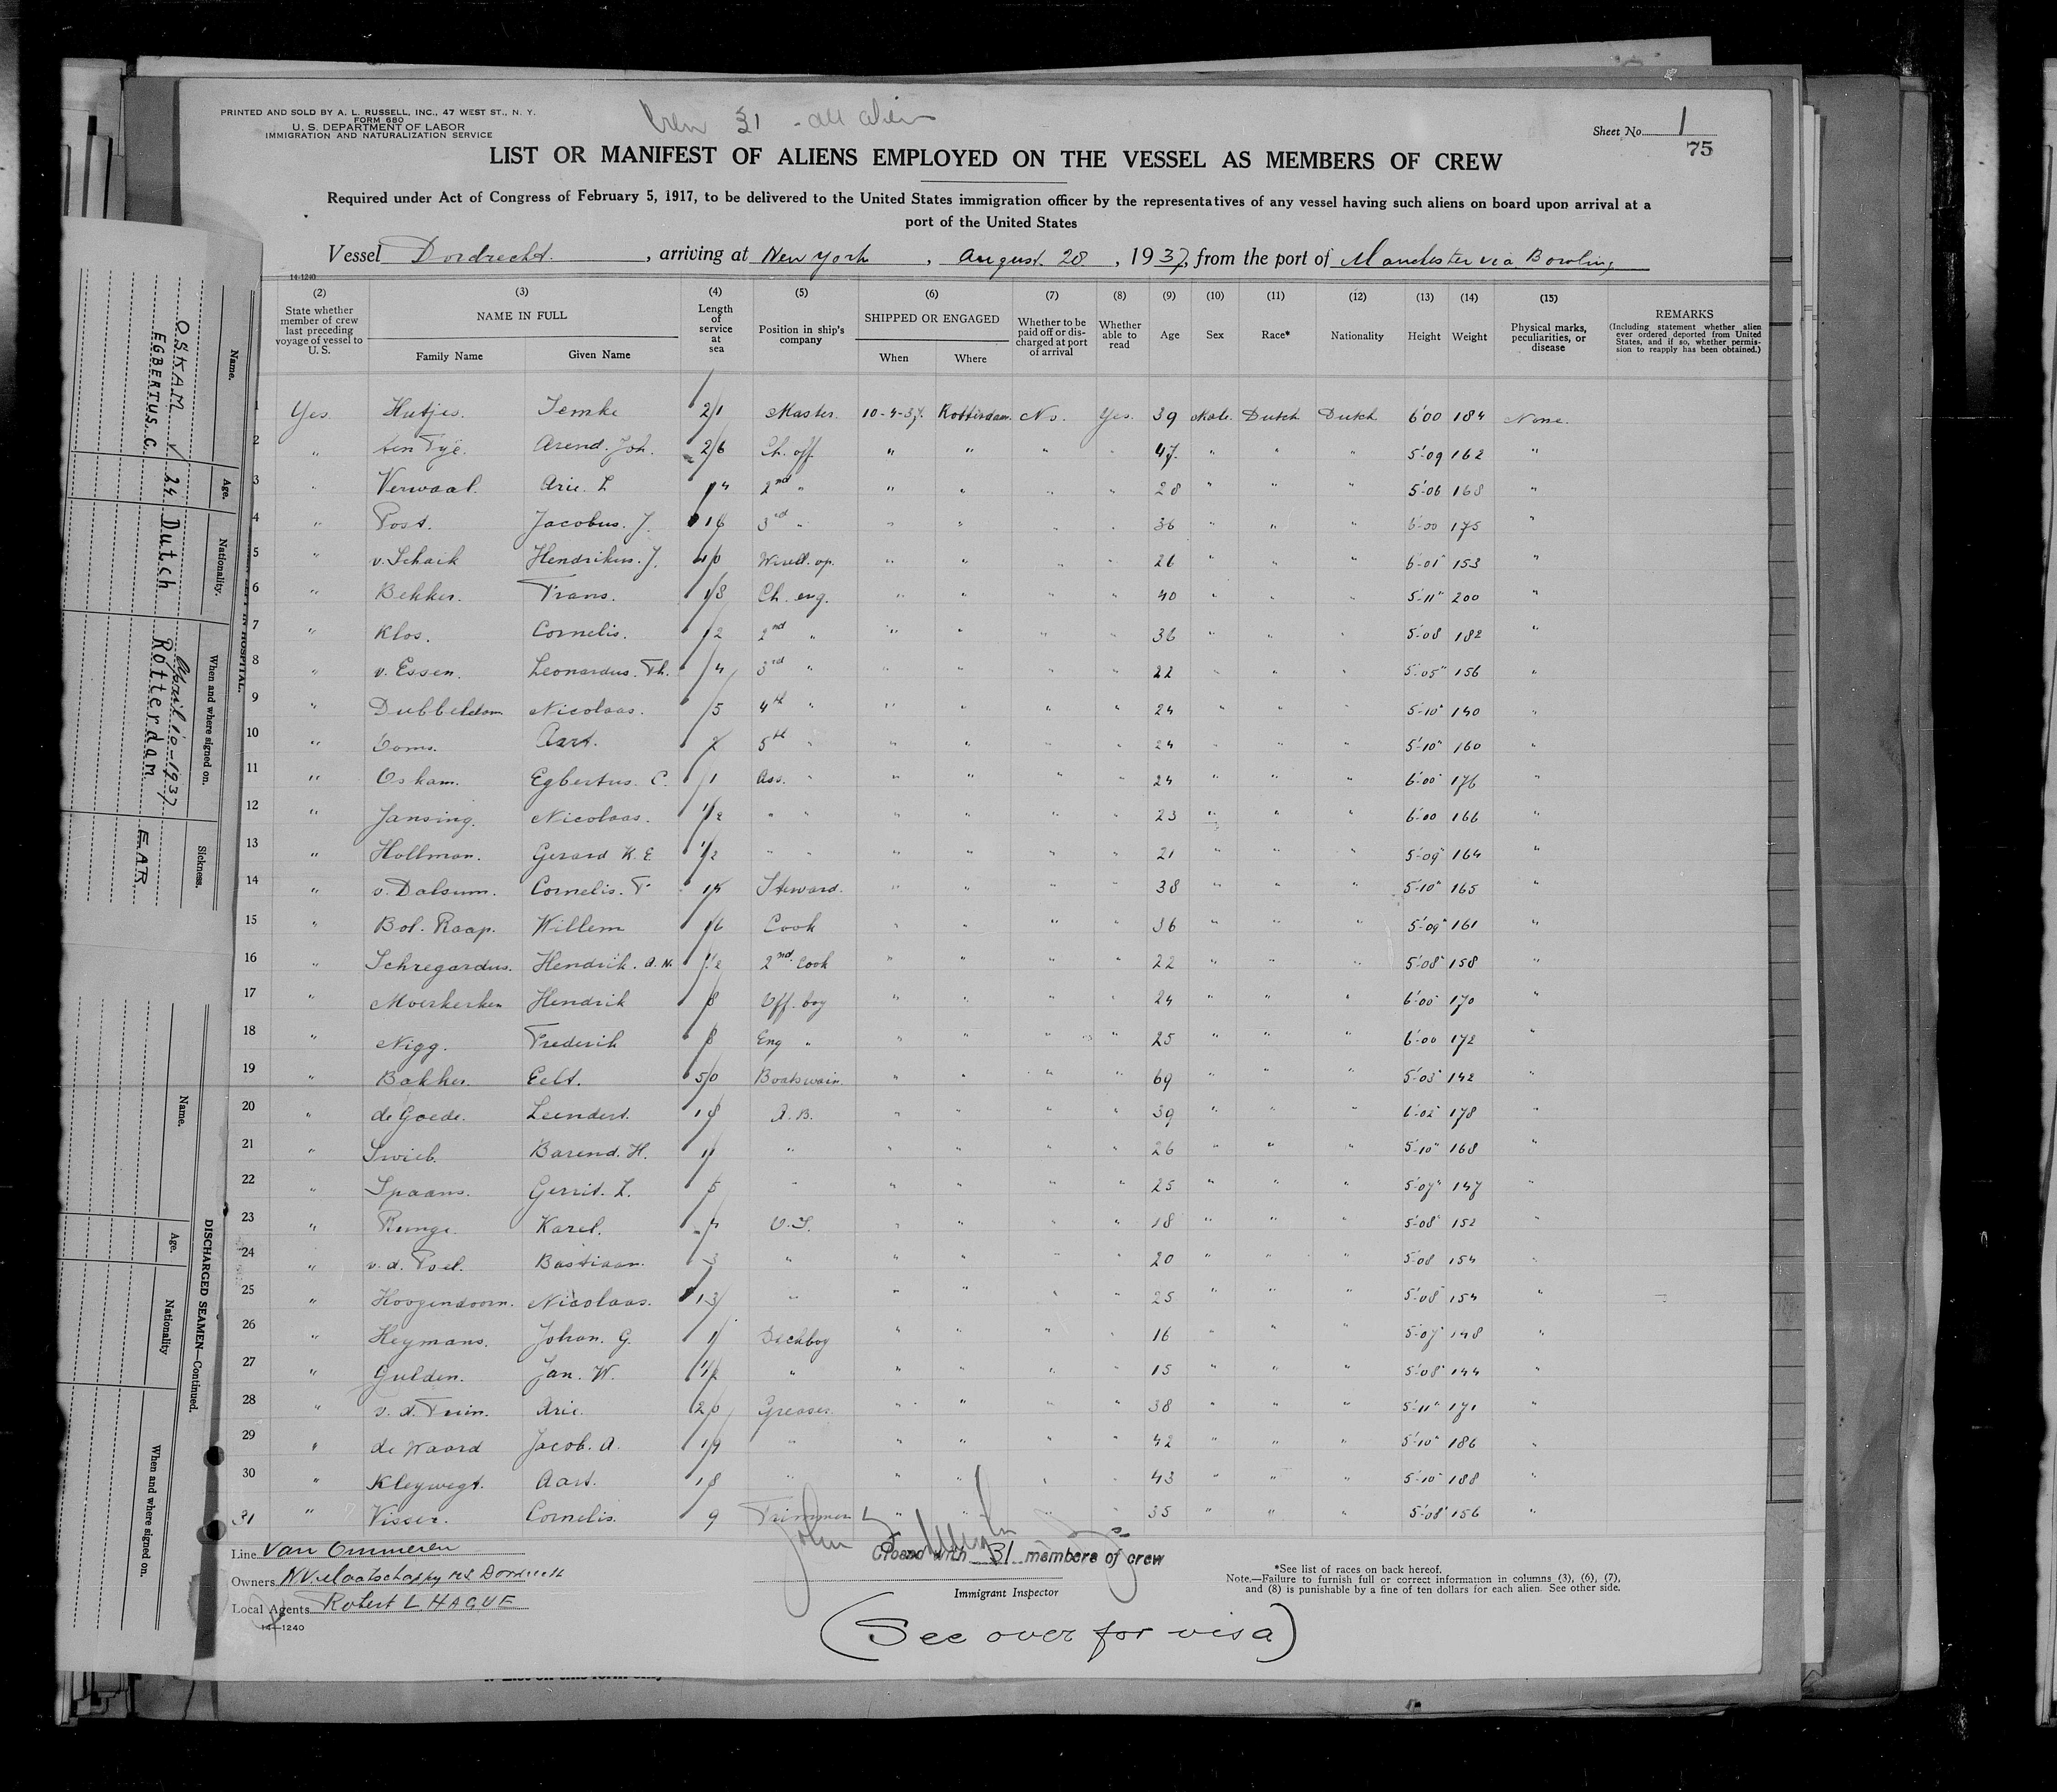 PRINTED AND SOLD BY A. L. RUSSELL, INC., 47 WEST ST., N. Y.
FORM 680
U. S. DEPARTMENT OF LABOR
IMMIGRATION AND NATURALIZATION SERVICE
Crew 31 - all alien
Sheet No. 1
75
LIST OR MANIFEST OF ALIENS EMPLOYED ON THE VESSEL AS MEMBERS OF CREW
Required under Act of Congress of February 5, 1917, to be delivered to the United States immigration officer by the representatives of any vessel having such aliens on board upon arrival at a
port of the United States
Vessel Dordrecht. , arriving at New York , August. 28. , 1937, from the port of Manchester via Bowling
14-1240
(2) State whether member of crew last preceding voyage of vessel to U. S.
(3) NAME IN FULL Family Name Given Name
(4) Length of service at sea
(5) Position in ship's company
(6) SHIPPED OR ENGAGED When Where
(7) Whether to be paid off or discharged at port of arrival
(8) Whether able to read
(9) Age
(10) Sex
(11) Race*
(12) Nationality
(13) Height
(14) Weight
(15) Physical marks, peculiarities, or disease
REMARKS (Including statement whether alien ever ordered deported from United States, and if so, whether permission to reapply has been obtained.)
1 Yes. Hutjes. Temke 21 Master. 10-4-37. Rotterdam. No. Yes. 39 Male. Dutch Dutch 6'00 184 None.
2 " ten Tye. Arend. Joh. 26 Ch. off. " " " " 47. " " " 5'09 162 "
3 " Verwaal. Arie. L 2nd " " " " " 28 " " " 5'06 168 "
4 " Post. Jacobus. J. 16 3rd " " " " " 36 " " " 6'00 175 "
5 " v. Schaik Hendrikus. J. Wirell. op. " " " " 26 " " " 6'01" 153 "
6 " Bekker. Frans. 18 Ch. eng. " " " " 40 " " " 5'11" 200 "
7 " Klos. Cornelis. 12 2nd " " " " " 36 " " " 5'08 182 "
8 " v. Essen. Leonardus. Th. 4 3rd " " " " " 22 " " " 5'05" 156 "
9 " Dubbeldam Nicolaas. 5 4th " " " " " 24 " " " 5'10" 140 "
10 " Ooms. Aart. 2 5th " " " " " 24 " " " 5'10" 160 "
11 " Oskam. Egbertus. C. 1 Ass. " " " " " 24 " " " 6'00" 176 "
12 " Jansing. Nicolaas. 1/2 " " " " " " 23 " " " 6'00 166 "
13 " Hollman. Gerard K. E. 1/2 " " " " " " 21 " " " 5'09" 164 "
14 " v. Dalsum. Cornelis. P. 15 Steward. " " " " 38 " " " 5'10" 165 "
15 " Bol. Raap. Willem 16 Cook " " " " 36 " " " 5'09" 161 "
16 " Schregardus. Hendrik. A. N. 1/2 2nd. Cook " " " " 22 " " " 5'08" 158 "
17 " Moerkerken Hendrik 8 Off. boy " " " " 24 " " " 6'00" 170 "
18 " Nigg. Frederik 8 Eng " " " " " 25 " " " 6'00 172 "
19 " Bakker. Eelt. 50 Boatswain. " " " " 69 " " " 5'03" 142 "
20 " de Goede. Leendert. 18 A. B. " " " " 39 " " " 6'02" 178 "
21 " Swieb. Barend. H. " " " " " 26 " " " 5'10" 168 "
22 " Spaans. Gerrit. L. 5 " " " " " 25 " " " 5'07" 147 "
23 " Bunge. Karel. O. S. " " " " 18 " " " 5'08" 152 "
24 " v. d. Poel. Bastiaan. 3 " " " " " 20 " " " 5'08 154 "
25 " Hoogendoorn. Nicolaas. 13 " " " " " 25 " " " 5'08" 154 "
26 " Heymans. Johan. G. 1 Deckboy " " " " 16 " " " 5'07" 148 "
27 " Gulden. Jan. W. 1/2 " " " " " 15 " " " 5'08" 144 "
28 " v. d. Tuin. Arie. 20 Greaser. " " " " 38 " " " 5'11" 171 "
29 " de Waard Jacob. A. 19 " " " " " 42 " " " 5'10" 186 "
30 " Kleywegt. Aart. 18 " " " " " 43 " " " 5'10" 188 "
31 " Visser. Cornelis. 9 Trimmer " " " " 35 " " " 5'08" 156 "
Line Van Ommeren
Owners N.V. Maatschappy M.S. Dordrecht
Local Agents Robert L HAGUE
14-1240
John
Closed with 31 members of crew
Immigrant Inspector
*See list of races on back hereof.
Note.—Failure to furnish full or correct information in columns (3), (6), (7),
and (8) is punishable by a fine of ten dollars for each alien. See other side.
(See over for visa)
Name. Age. Nationality. When and where signed on. Sickness.
OSKAM
EGBERTUS. C. 24 Dutch April 10-1937 Rotterdam EAR.
IN HOSPITAL.
DISCHARGED SEAMEN—Continued.
Name. Age. Nationality When and where signed on.